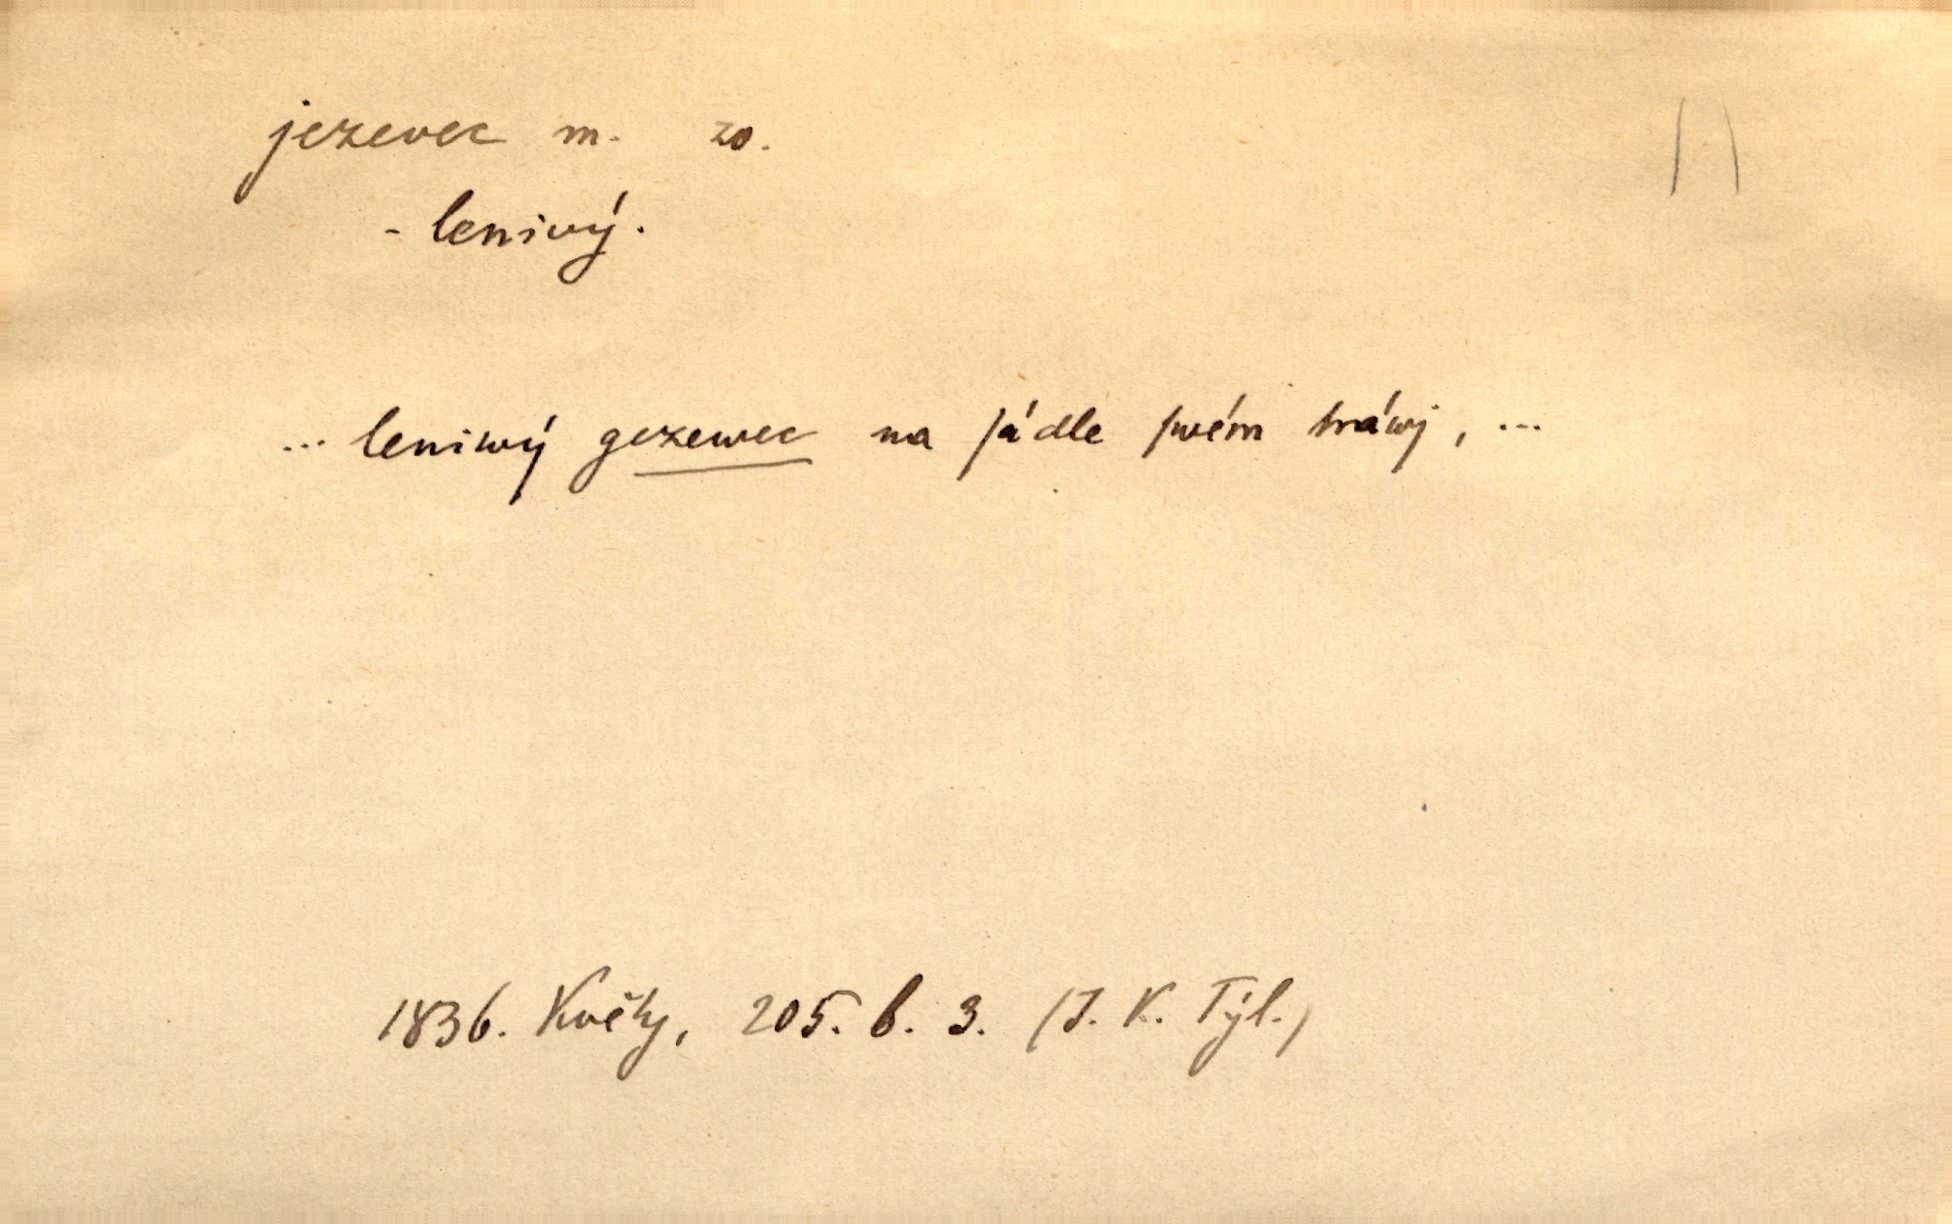 jezevec m. zo.
- lenivý.
... leniwý gezewec na ſádle ſwém tráwj, ...
1836. Květy, 205. b. 3. (J. K. Týl.)